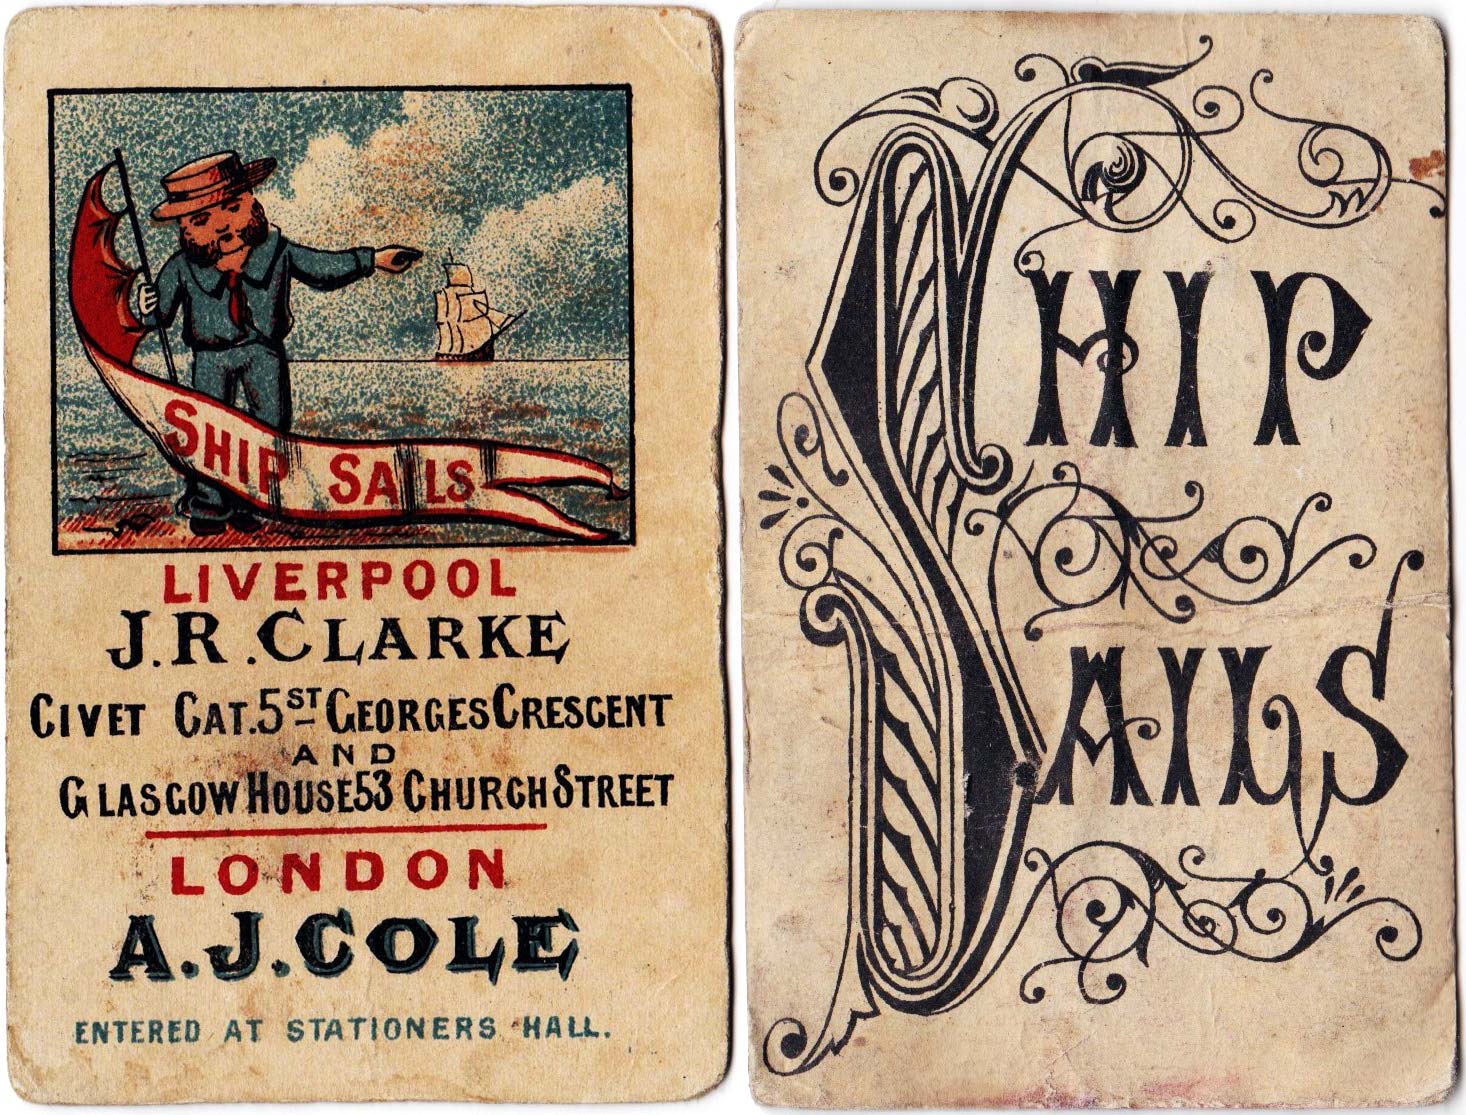 SHIP SAILS
LIVERPOOL
J.R.CLARKE
CIVET CAT.5ST GEORGES CRESCENT
AND
GLASGOW HOUSE 53 CHURCH STREET
LONDON
A.J.COLE
ENTERED AT STATIONERS HALL.
SHIP
SAILS